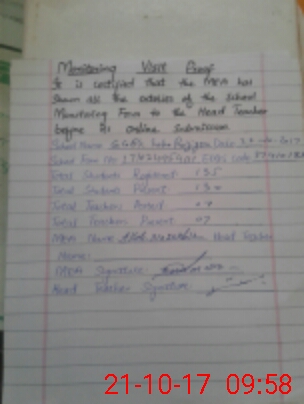 Monitoring Visit Proof
It is certified that the MEA has
shown all the entries of the School
Monitoring Form to the Head Teacher
before its online submission
School Name Date
School Form No: EMIS Code
Total Students Registered: 135
Total Students Present: 130
Total Teachers Posted: 07
Total Teachers Present: 07
MEA Name Head Teacher
Name:
MEA Signature:
Head Teacher Signature:
21-10-17 09:58